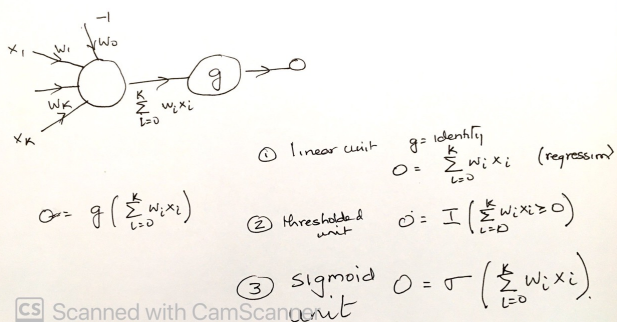 -1
x₁ w₁ w₀
g o
w_K
x_K
∑_{i=0}^{K} wᵢxᵢ
① linear unit g = identity
o = ∑_{i=0}^{K} wᵢxᵢ (regression)
o = g(∑_{i=0}^{K} wᵢxᵢ)
② thresholded unit o = I(∑_{i=0}^{K} wᵢxᵢ ≥ 0)
③ sigmoid unit o = σ(∑_{i=0}^{K} wᵢxᵢ).
CS Scanned with CamScanner